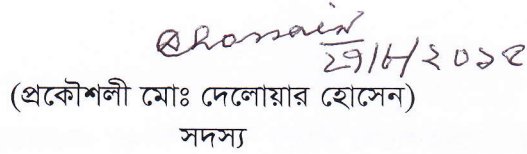 ২৭/৮/২০১৫
(প্রকৌশলী মোঃ দেলোয়ার হোসেন)
সদস্য